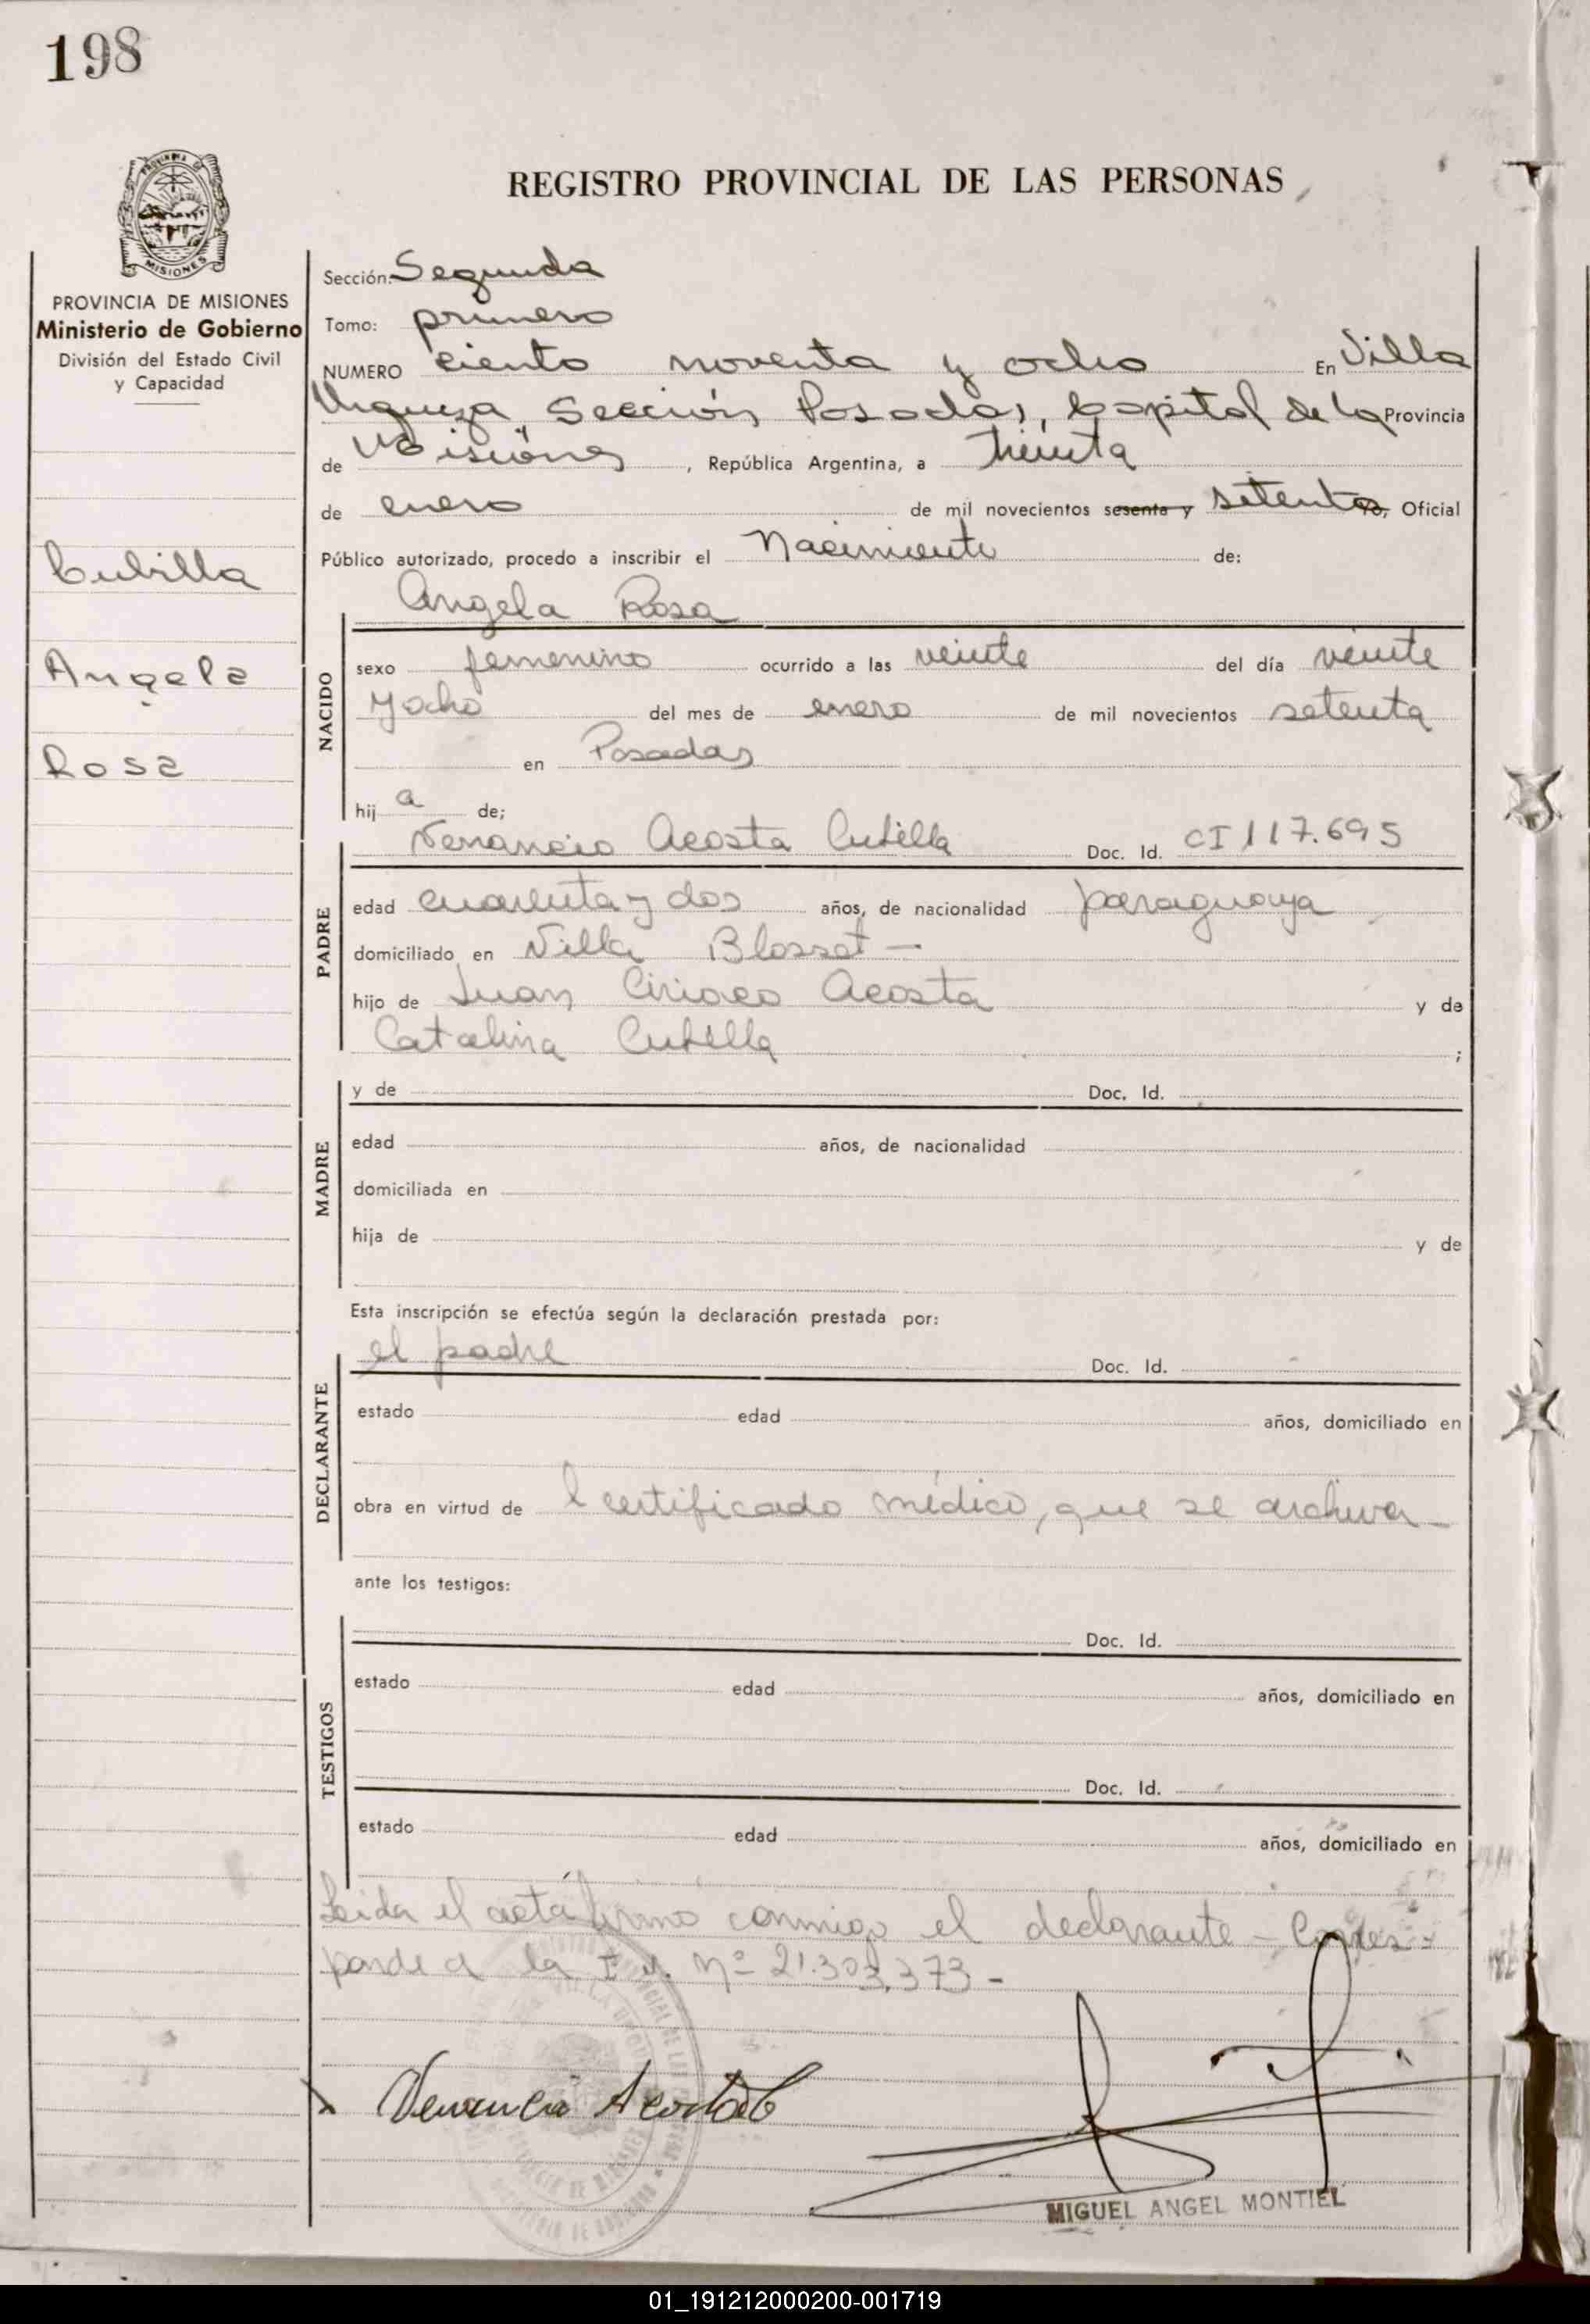 198
REGISTRO PROVINCIAL DE LAS PERSONAS
MISIONES
PROVINCIA DE MISIONES
Ministerio de Gobierno
División del Estado Civil
y Capacidad
Cubilla
Angela
Rosa
Sección: Segunda
Tomo: primero
NUMERO ciento noventa y ocho En Villa
Urquiza Sección Posadas, Capital de la Provincia
de Misiones, República Argentina, a treinta
de enero de mil novecientos sesenta y setenta, Oficial
Público autorizado, procedo a inscribir el Nacimiento de:
Angela Rosa
NACIDO
sexo femenino ocurrido a las veinte del día veinte
y ocho del mes de enero de mil novecientos setenta
en Posadas
hij a de;
Venancio Acosta Cubilla Doc. Id. CI 117.695
PADRE
edad cuarenta y dos años, de nacionalidad paraguaya
domiciliado en Villa Blosset —
hijo de Juan Ciriaco Acosta y de
Catalina Cubilla ;
MADRE
y de Doc. Id.
edad años, de nacionalidad
domiciliada en
hija de y de
Esta inscripción se efectúa según la declaración prestada por:
el padre Doc. Id.
DECLARANTE
estado edad años, domiciliado en
obra en virtud de l certificado médico, que se archiva —
ante los testigos:
TESTIGOS
Doc. Id.
estado edad años, domiciliado en
Doc. Id.
estado edad años, domiciliado en
Leida el acta firmó conmigo el declarante - Corres-
ponde a la nº 21.303.373 -
Venancio Acosta C
MIGUEL ANGEL MONTIEL
01_191212000200-001719